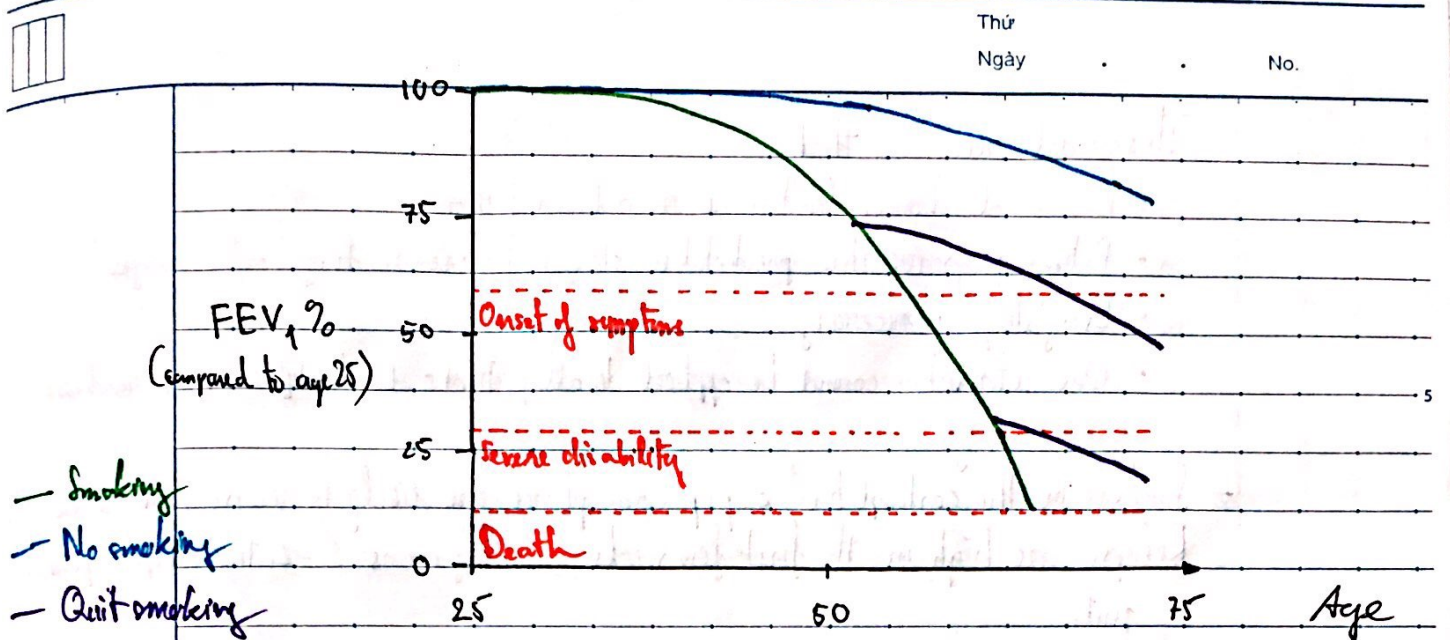 Thứ
Ngày . . No.
100
75
FEV₁ %
50
(compared to age 25)
Onset of symptoms
5
25
Severe disability
Smoking
No smoking
Death
0
Quit smoking
25 50 75 Age